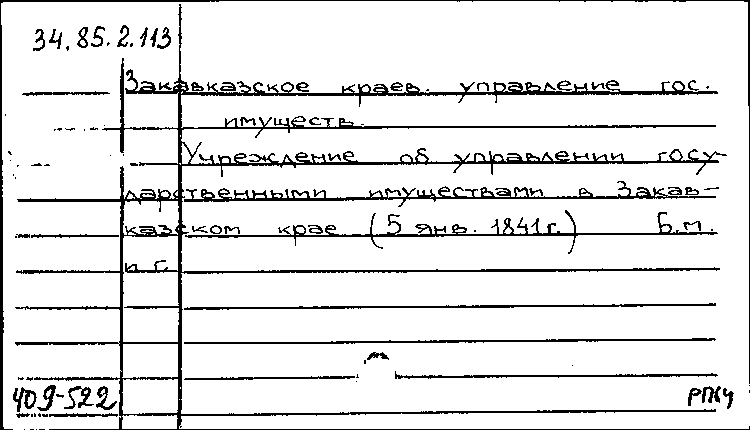 34.85.2.113
Закавказское краев. управление гос.
имуществ.
Учреждение об управлении госу-
дарственными имуществами в Закав-
казском крае (5 янв. 1841 г.) Б.м.
и г.
409-522